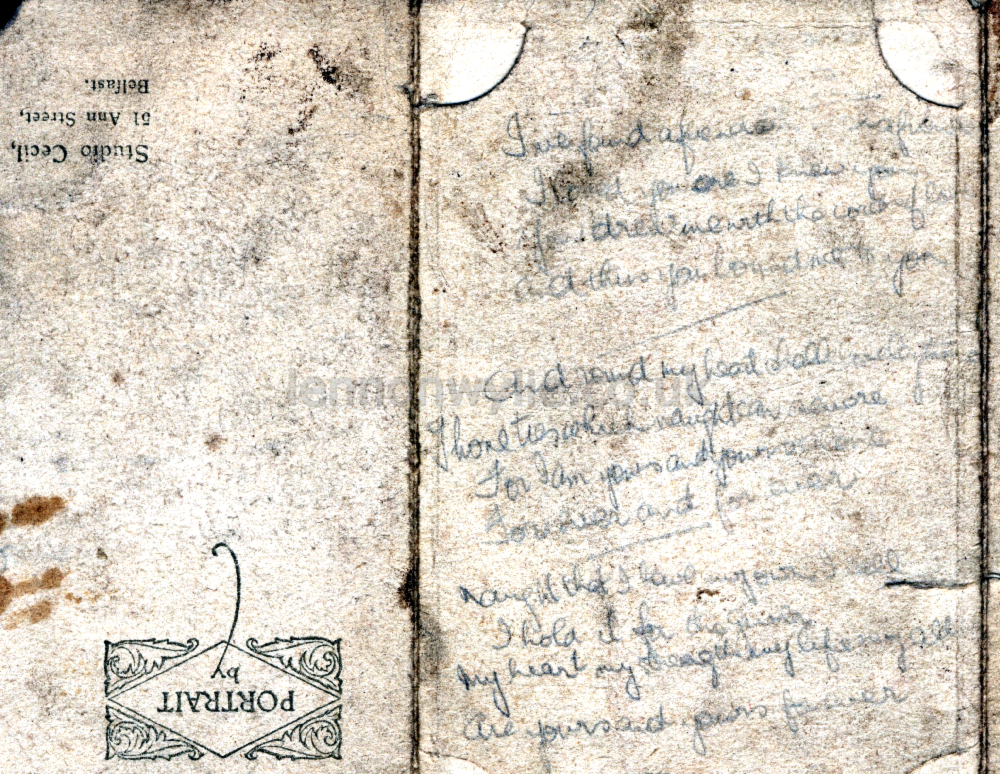 PORTRAIT
by
Studio Cecil,
51 Ann Street,
Belfast.
I've found a friend
I knew you
me with the cords of
and thus you bound me to you
And round my heart
Those ties which naught can
For I am yours and yours
Forever and for ever
Naught that I have my own I call
I hold it for the giver
My heart my strength my life my all
Are yours and yours forever